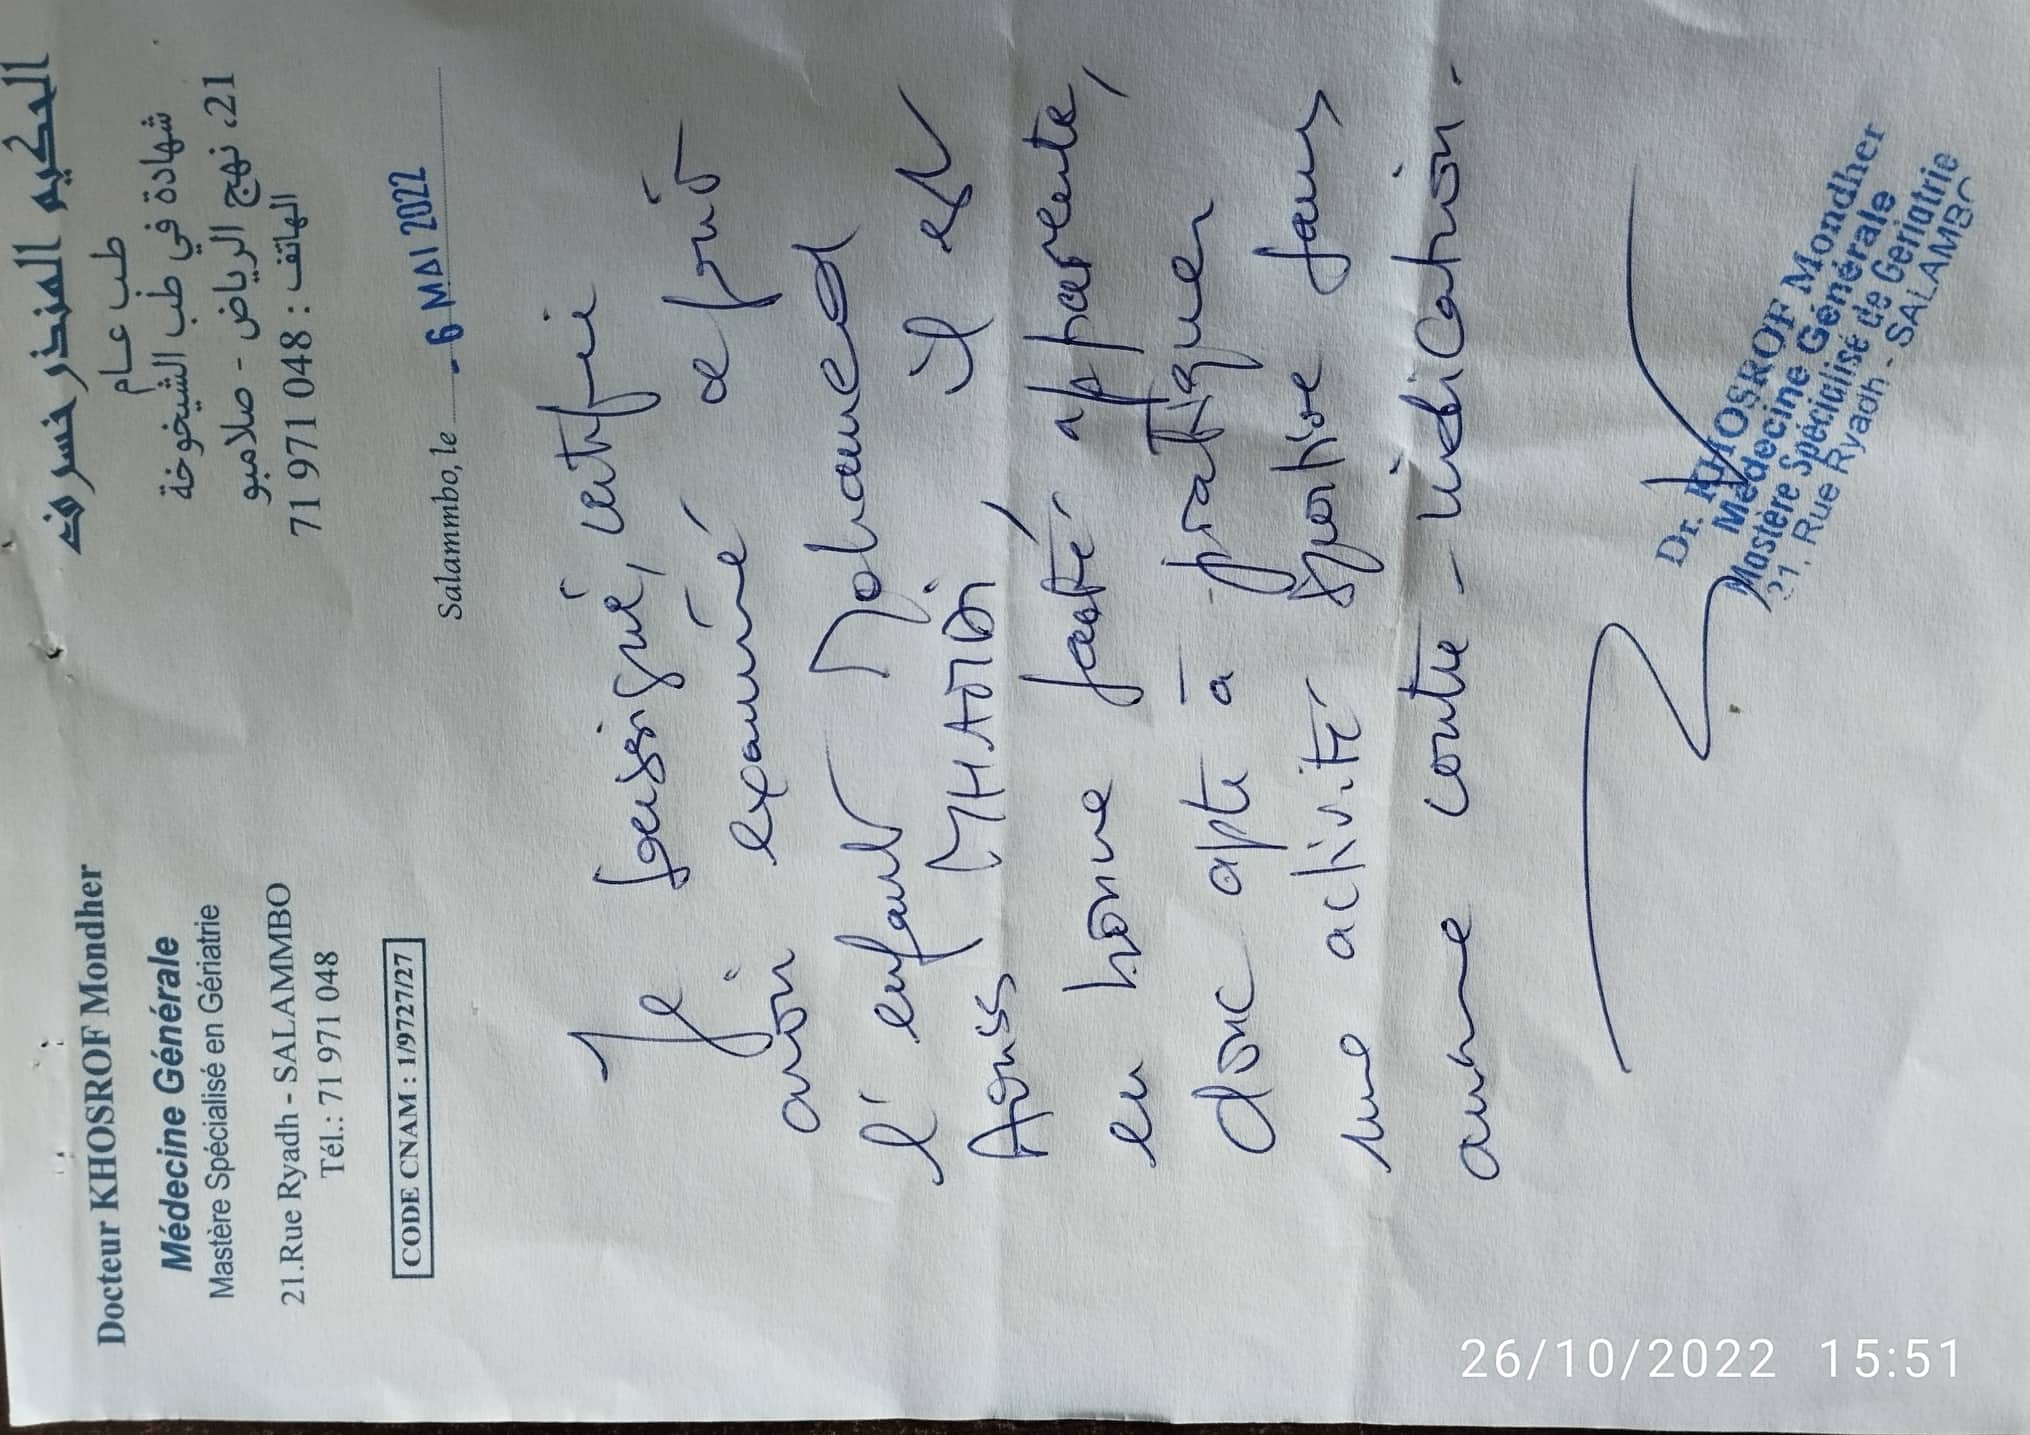 Docteur KHOSROF Mondher
Médecine Générale
Mastère Spécialisé en Gériatrie
21.Rue Ryadh - SALAMMBO
Tél.: 71 971 048
CODE CNAM : 1/9727/27
الحكيم المنذر خسرف
طب عام
شهادة في طب الشيخوخة
21، نهج الرياض - صلامبو
الهاتف : 048 971 71
Salammbo, le - 6 MAI 2022
Je soussigné, certifie
avoir examiné ce jour
l'enfant Mohamed
Aouss MHADBI, il est
en bonne santé apparente,
donc apte à pratiquer
une activité sportive sans
aucune contre-indication.
Dr. KHOSROF Mondher
Médecine Générale
Mastère Spécialisé de Gériatrie
21, Rue Ryadh - SALAMBO
26/10/2022 15:51